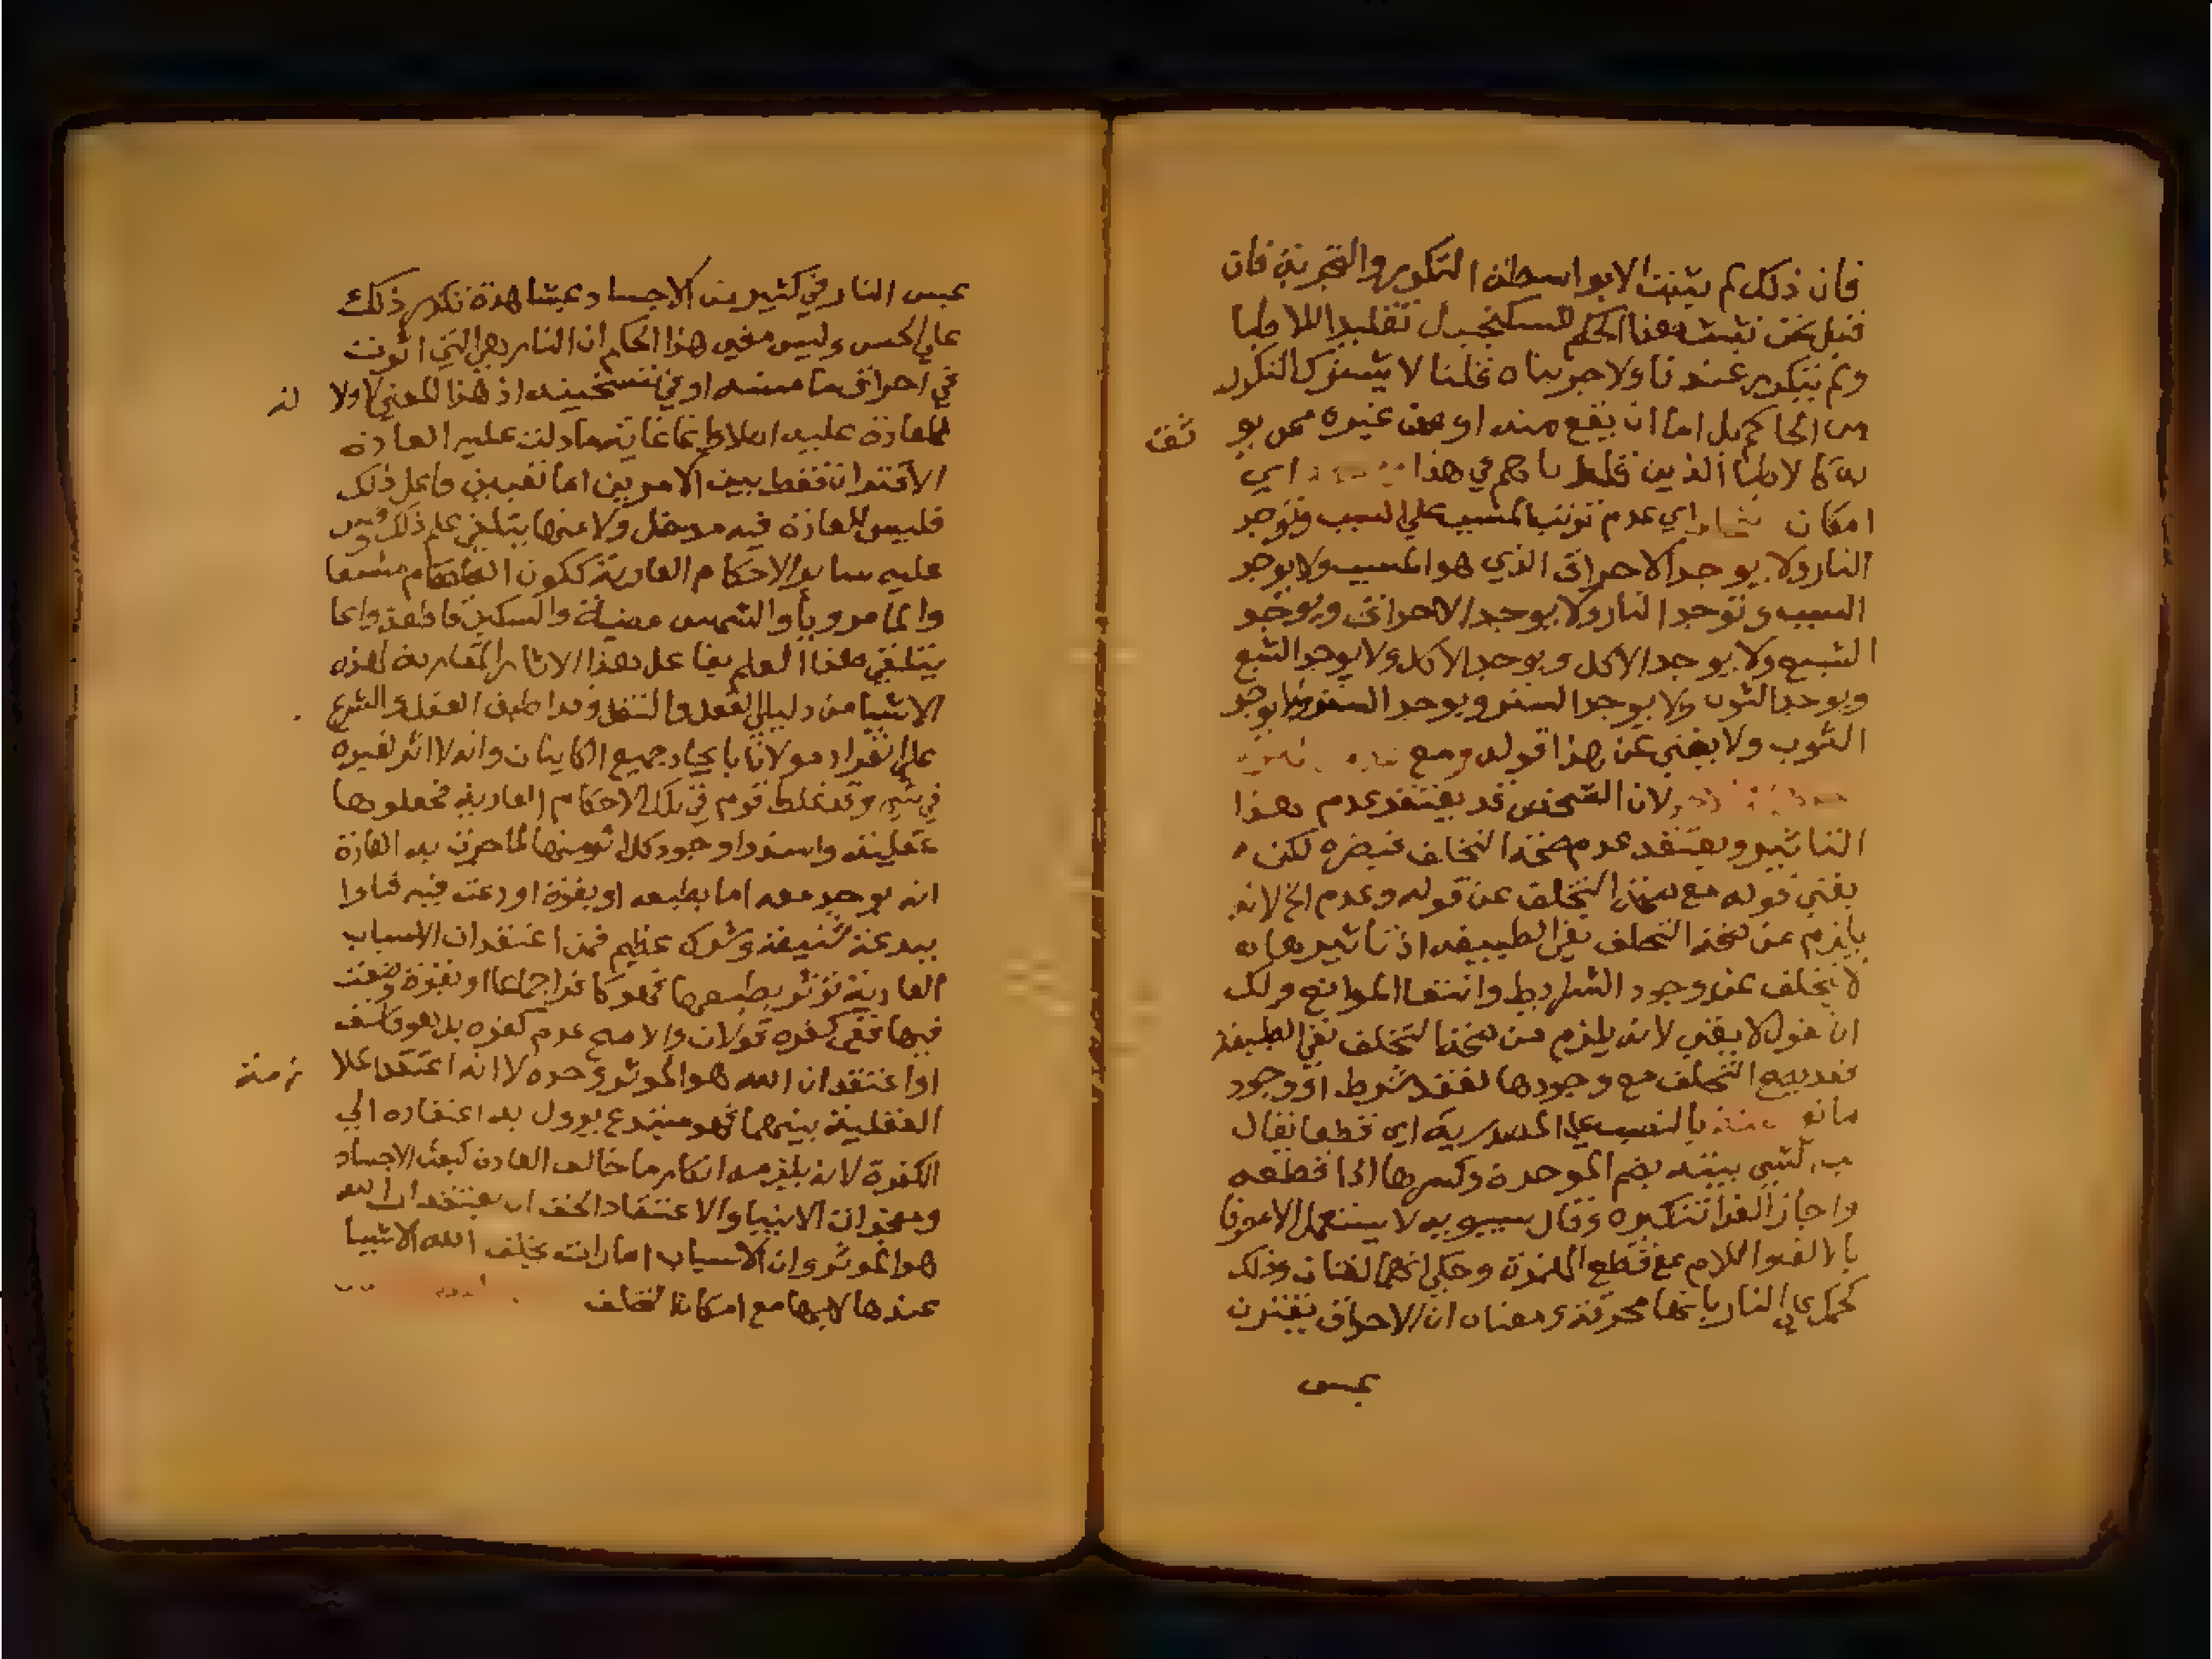 فان ذلك لم يثبت الا بواسطة التكرر والتجربة فان
قيل نحن نثبت هذا الحكم للسكنجبيل تقليدا للاطبا
ولم يتكرر عندنا ولا جربناه قلنا لا يشترك التكرر
من الحاكم بل اما ان يقع منه او من غيره ممن يو ثق
به كالاطبا الذين قلدناهم في هذا اي
امكان اي عدم ترتب المسبب علي السبب وتوجد
النار ولا يوجد الاحراق الذي هو المسبب ولا يوجد
السبب وتوجد النار ولا يوجد الاحراق ويوجد
الشبع ولا يوجد الاكل ويوجد الاكل ولا يوجد الشبع
ويوجد الثوب ولا يوجد الستر ويوجد الستر ولا يوجد
الثوب ولا يغني عن هذا قوله ومع
لان الشخص قد يعتقد عدم هذا
التاثير ويعتقد عدم صحة التخلف فيضره لكن
يغني قوله مع صحة التخلف عن قوله وعدم الخ لانه
يلزم من صحة التخلف نفي الطبيعه اذ تاثيرها
لا يتخلف عند وجود الشرايط وانتفا الموانع ولك
ان تقول لا يغني لانه يلزم من صحة التخلف نفي الطبيعة
فقد يصح التخلف مع وجودها لفقد شرط او وجود
مانع بالنصب علي المصدرية اي قطعا يقال
بت الشي يبته بضم الموحدة وكسرها اذا قطعه
واجاز الفرا تنكيره وقال سيبويه لا يستعمل الا معرفا
بالالف واللام مع قطع الهمزة وحكي انهما لغتان وذلك
كحكم علي النار بانها محرقة ومعناه ان الاحراق يقترن
بمس
بمس النار في كثير من الاجساد بمشاهدة تكرر ذلك
علي الحس وليس معني هذا الحكم ان النار هي التي اثرت
في احراق ما مسته او في تسخينه اذ هذا المعني لا ولا لة
للعادة عليه اصلا وانما غاية ما دلت عليه العادة
الاقتران فقط بين الامرين اما تعيين فاعل ذلك
فليس للعادة فيه مدخل ولا منها يتلقي علم ذلك وقس
عليه ساير الاحكام العادية ككون الطعام مشبعا
والما مرويا والشمس مضيئة والسكين قاطعة وانما
يتلقي هذا العلم بفاعل هذه الاثار المقارنة لهذه
الاشيا من دليلي العقل والنقل وقد اطبق العقل والشرع
علي انفراد مولانا بايجاد جميع الكاينات وانه لا اثر لغيره
في شي وقد غلط قوم في تلك الاحكام العادية فجعلوها
عقلية واسندوا وجود كل اثر منها لما جرت به العادة
انه يوجد معه اما بطبعه او بقوة اودعت فيه فباوا
ببدعة شنيعة وشرك عظيم فمن اعتقد ان الاسباب
العادية توثر بطبعها فهو كافر اجماعا او بقوة وضعت
فيها ففي كفره قولان والاصح عدم كفره بل هو فاسق
او اعتقد ان الله هو الموثر وحده الا انه اعتقد الملا زمة
العقلية بينهما فهو مبتدع يوول به اعتقاده الي
الكفر لانه يلزمه انكار ما خالف العادة كبعث الاجساد
ومعجزات الانبيا والاعتقاد الحق ان يعتقد ان الله
هو الموثر وان الاسباب امارات يخلق الله الاشيا
عندها لا بها مع امكان التخلف